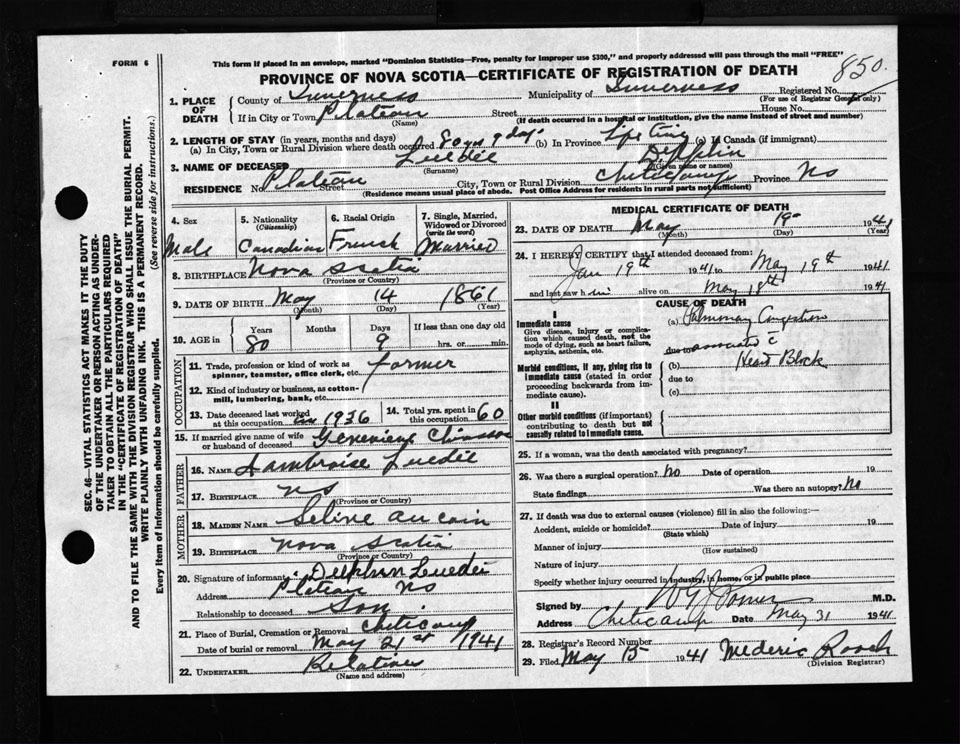 FORM 6
This form if placed in an envelope, marked "Dominion Statistics—Free, penalty for improper use $300," and properly addressed will pass through the mail "FREE"
PROVINCE OF NOVA SCOTIA—CERTIFICATE OF REGISTRATION OF DEATH
850.
SEC. 46—VITAL STATISTICS ACT MAKES IT THE DUTY
OF THE UNDERTAKER OR PERSON ACTING AS UNDER-
TAKER TO OBTAIN ALL THE PARTICULARS REQUIRED
IN THE "CERTIFICATE OF REGISTRATION OF DEATH"
AND TO FILE THE SAME WITH THE DIVISION REGISTRAR WHO SHALL ISSUE THE BURIAL PERMIT.
WRITE PLAINLY WITH UNFADING INK. THIS IS A PERMANENT RECORD.
Every item of Information should be carefully supplied. (See reverse side for instructions.)
1. PLACE OF DEATH
County of Inverness Municipality of Inverness Registered No.
(For use of Registrar General only)
If in City or Town Plateau Street House No.
(Name) (If death occurred in a hospital or institution, give the name instead of street and number)
2. LENGTH OF STAY (in years, months and days)
(a) In City, Town or Rural Division where death occurred 80 yrs 9 days (b) In Province Life time (c) In Canada (if immigrant)
3. NAME OF DECEASED Luedée
(Surname) (Given name or names)
RESIDENCE No. Plateau Street City, Town or Rural Division Cheticamp Province NS
(Residence means usual place of abode. Post Office Address for residents in rural parts not sufficient)
4. Sex Male
5. Nationality (Citizenship) Canadian
6. Racial Origin French
7. Single, Married, Widowed or Divorced (write the word) Married
8. BIRTHPLACE Nova Scotia
(Province or Country)
9. DATE OF BIRTH May 14 1861
(Month) (Day) (Year)
10. AGE in Years Months Days If less than one day old
80 9 hrs. or min.
OCCUPATION
11. Trade, profession or kind of work as spinner, teamster, office clerk, etc. farmer
12. Kind of industry or business, as cotton-mill, lumbering, bank, etc.
13. Date deceased last worked at this occupation in 1936
14. Total yrs. spent in this occupation 60
15. If married give name of wife or husband of deceased Genevieve Chiasson
FATHER
16. NAME Lambroise Luedée
17. BIRTHPLACE NS
(Province or Country)
MOTHER
18. MAIDEN NAME Seline Aucoin
19. BIRTHPLACE Nova Scotia
(Province or Country)
20. Signature of informant
Address Plateau NS
Relationship to deceased Son.
21. Place of Burial, Cremation or Removal Cheticamp
Date of burial or removal May 21st 1941
22. UNDERTAKER Relatives
(Name and address)
MEDICAL CERTIFICATE OF DEATH
23. DATE OF DEATH May 19 1941
(Month) (Day) (Year)
24. I HEREBY CERTIFY that I attended deceased from:
Jan 19th 1941 to May 19th 1941
and last saw him alive on May 18th 1941
CAUSE OF DEATH
I
Immediate cause
Give disease, injury or complication which caused death, not the mode of dying, such as heart failure, asphyxia, asthenia, etc.
(a) Pulmonary Congestion
due to associated c
Morbid conditions, if any, giving rise to immediate cause (stated in order proceeding backwards from immediate cause).
(b) Heart Block
due to
(c)
II
Other morbid conditions (if important) contributing to death but not causally related to immediate cause.
25. If a woman, was the death associated with pregnancy?
26. Was there a surgical operation? No Date of operation 19
State findings Was there an autopsy? No
27. If death was due to external causes (violence) fill in also the following:—
Accident, suicide or homicide? Date of injury 19
(State which)
Manner of injury
(How sustained)
Nature of injury
Specify whether injury occurred in industry, in home, or in public place
Signed by M.D.
Address Cheticamp Date May 31 1941
28. Registrar's Record Number
29. Filed May 15 1941 Mederic Roach
(Division Registrar)